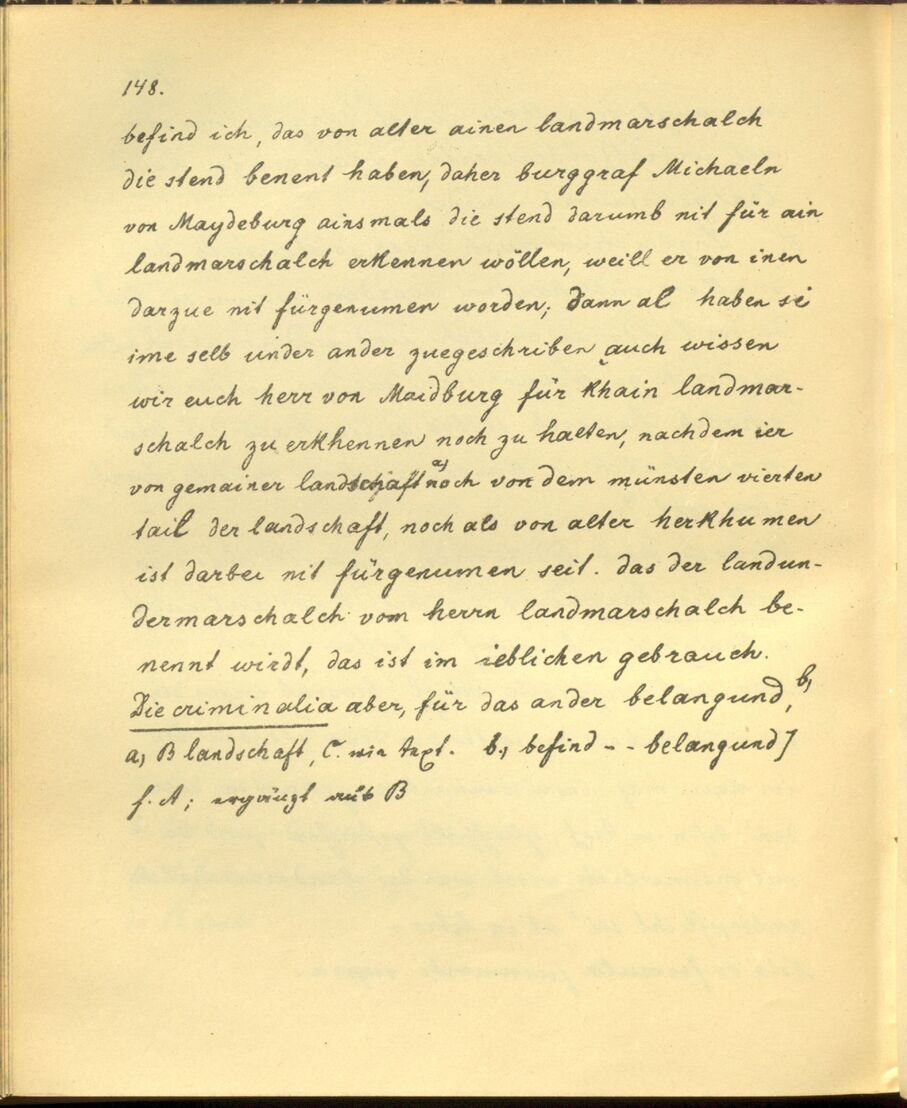 148.
befind ich, das von alter ainen landmarschalch
die stend benent haben, daher burggraf Michaeln
von Maydeburg ainsmals die stend darumb nit für ain
landmarschalch erkennen wöllen, weill er von inen
darzue nit fürgenumen worden; dann al haben si
ime selb under ander zuegeschriben auch wissen
wir euch herr von Maidburg für khain landmar-
schalch zu erkhennen noch zu halten, nachdem ier
von gemainer landschaft a) noch von dem münsten vierten
tail der landschaft, noch als von alter herkhumen
ist darbei nit fürgenumen seit. das der landun-
dermarschalch vom herrn landmarschalch be-
nennt wirdt, das ist im ieblichen gebrauch.
Die criminalia aber, für das ander belangund, b)
a) B landschaft, C. wie Text. b) befind - - belangund]
f. A; ergänzt aus B